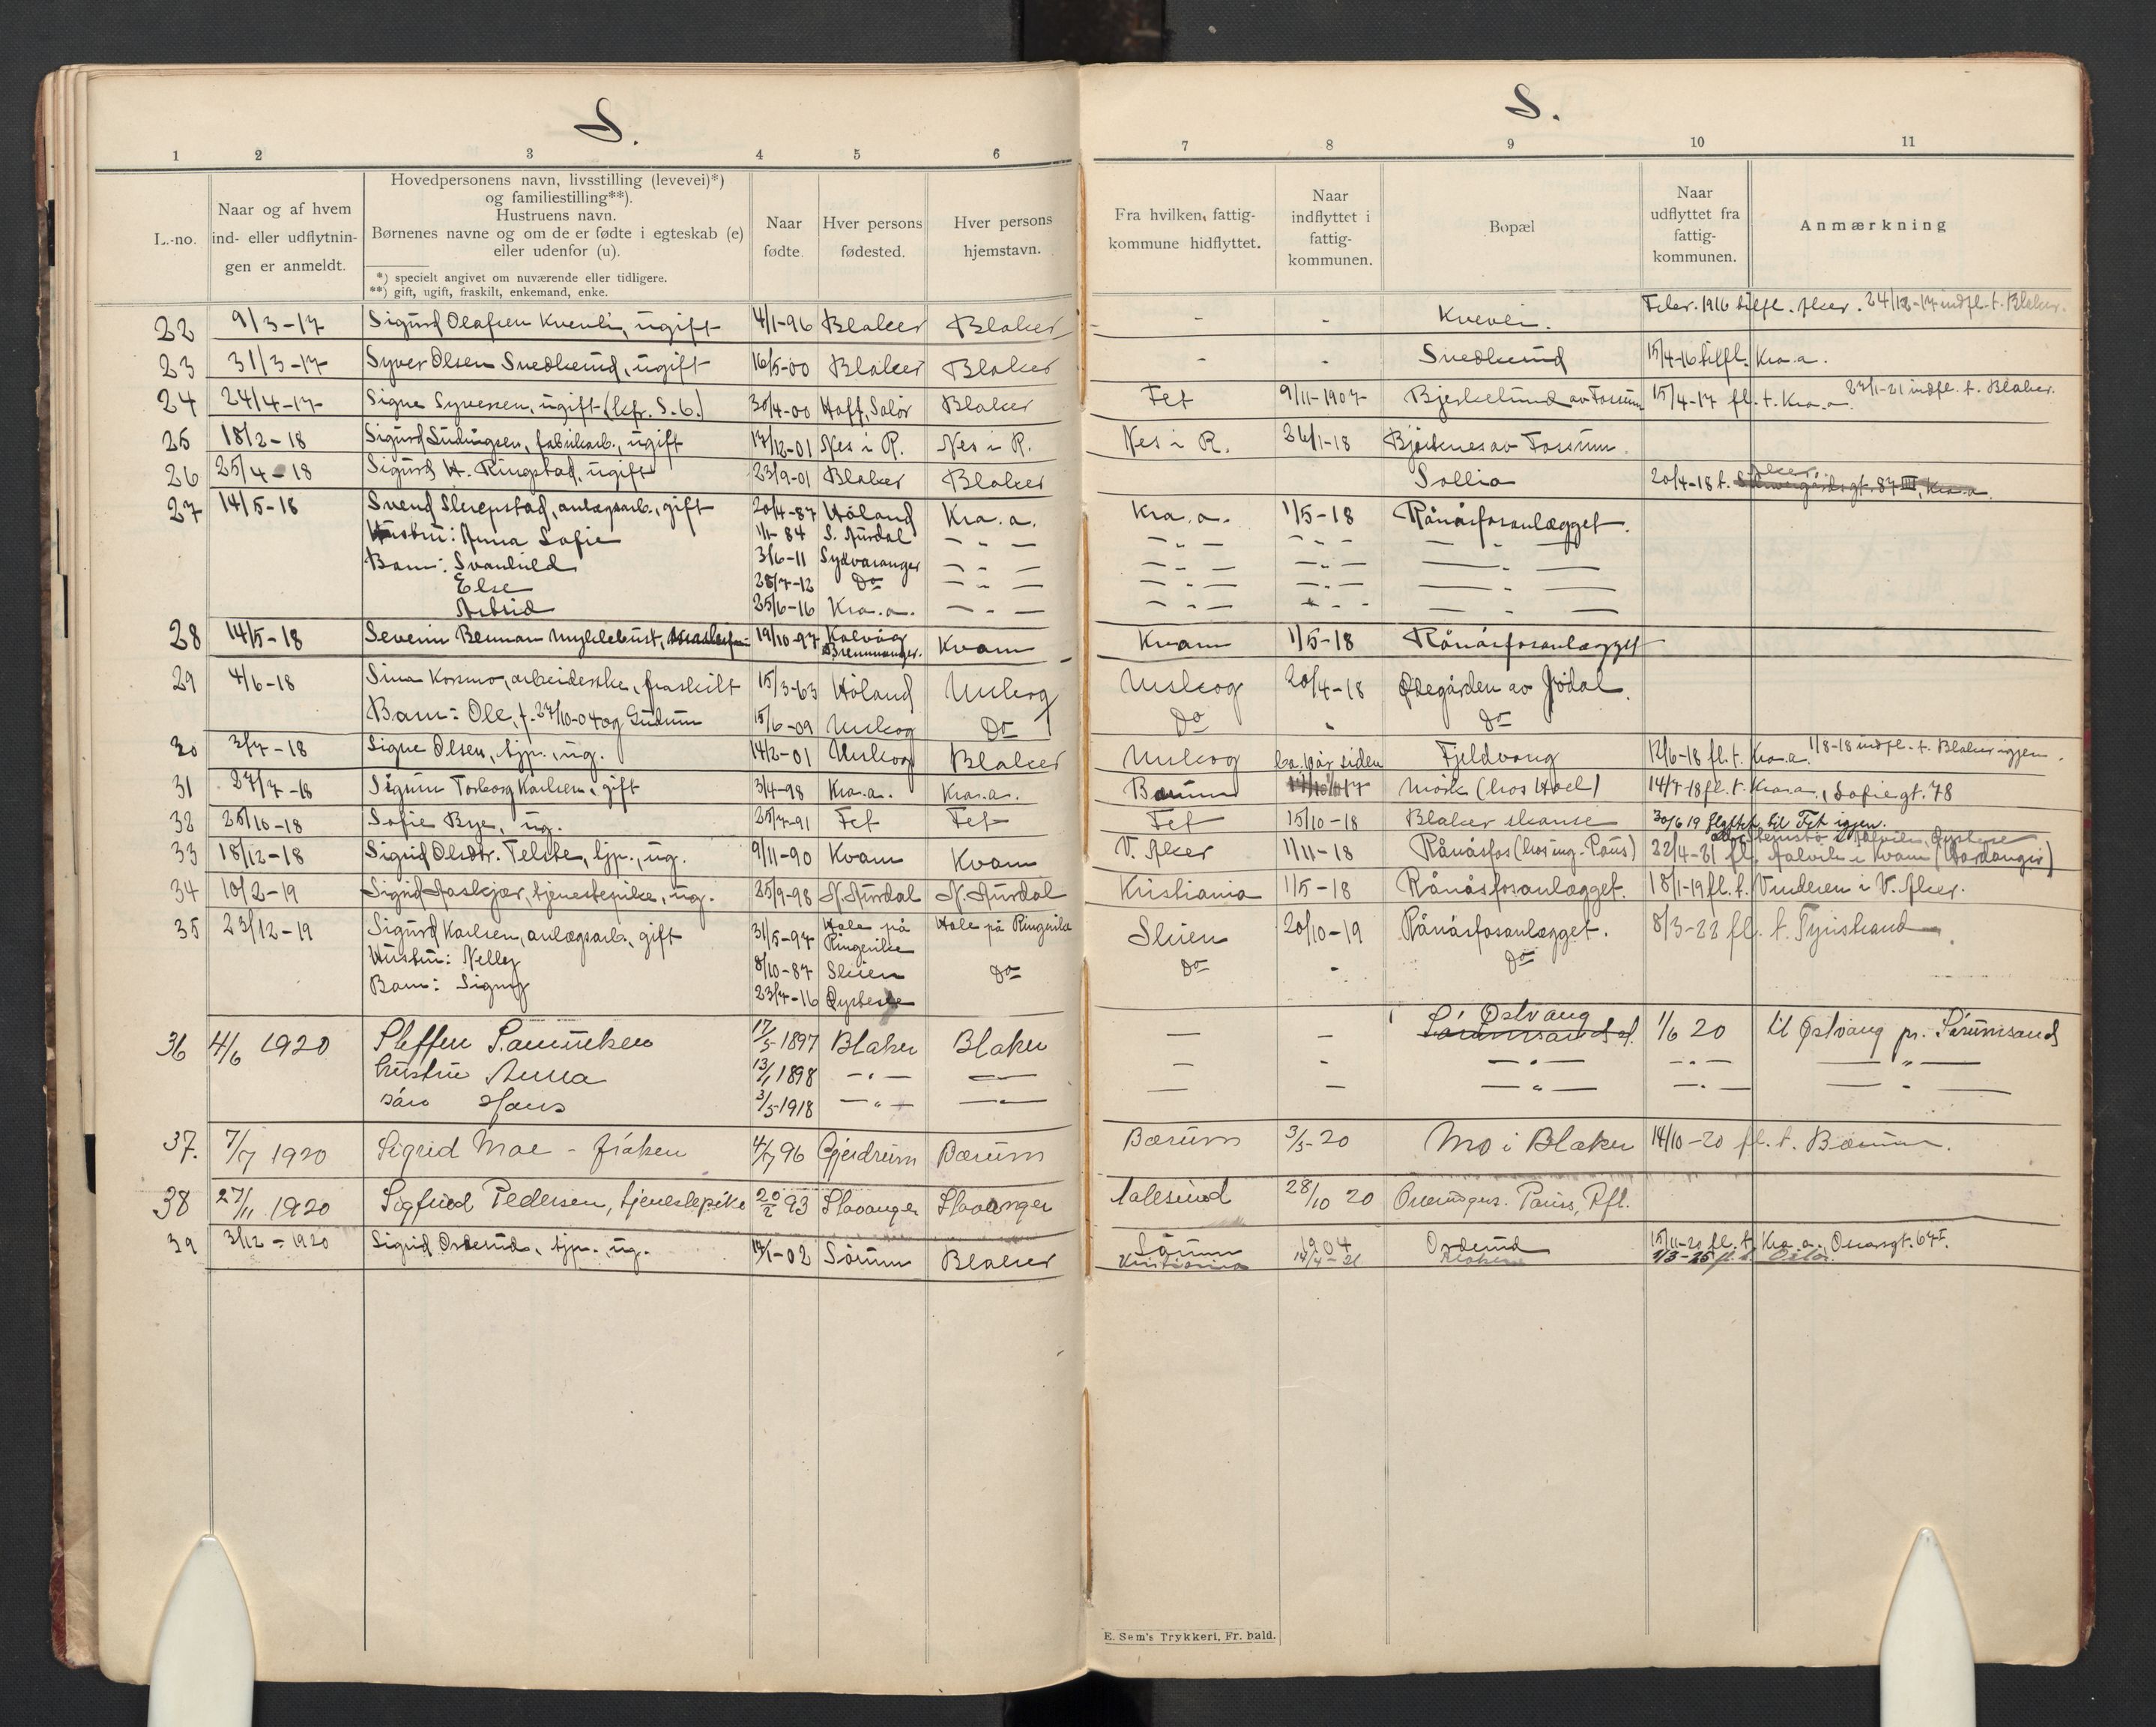 S.
1 2 3 4 5 6
L.-no.
Naar og af hvem ind- eller udflytnin- gen er anmeldt.
Hovedpersonens navn, livsstilling (levevei)*)
og familiestilling**).
Hustruens navn.
Børnenes navne og om de er fødte i egteskab (e)
eller udenfor (u).
*) specielt angivet om nuværende eller tidligere.
**) gift, ugift, fraskilt, enkemand, enke.
Naar fødte.
Hver persons fødested.
Hver persons hjemstavn.
S.
7 8 9 10 11
Fra hvilken, fattig- kommune hidflyttet.
Naar indflyttet i fattig- kommunen.
Bopæl
Naar udflyttet fra fattig- kommunen.
Anmærkning
22 9/3-17 Sigurd Olafsen Kvevli, ugift 4/1-96 Blaker Blaker - - Kvevli. Febr. 1916 utfl. Aker. 24/12-17 indfl. t. Blaker.
23 31/3-17 Syver Olsen Svedlund, ugift 16/5-00 Blaker Blaker - - Svedlund 15/4-16 utfl. Kra.a.
24 24/4-17 Signe Syversen, ugift (kfr. S. 6.) 30/4-00 Hoff, Solør Blaker Fet 9/11-1907 Bjerkelund av Fossum 15/4-17 fl. t. Kra.a. 23/1-21 indfl. t. Blaker.
25 18/2-18 Sigurd Ludvigsen, fabrikarb., ugift 17/12-01 Nes i R. Nes i R. Nes i R. 26/1-18 Bjerkenes av Fossum.
26 25/4-18 Sigurd H. Ringstad, ugift 23/9-01 Blaker Blaker Sollia 20/4-18 t. Aker gt. 87 III, Kra.a.
27 14/5-18 Svend Slrepstad, anlægsarb., gift 20/4-87 Høland Kra.a. Kra.a. 1/5-18 Rånåsfosanlægget.
Hustru: Anna Sofie 1/1-84 S. Aurdal — „ — — „ — — „ — — „ —
Barn: Svanhild 3/6-11 Sydvaranger — „ — — „ — — „ — — „ —
Else 28/7-12 Do — „ — — „ — — „ — — „ —
Astrid 25/6-16 Kra.a. — „ — — „ — — „ — — „ —
28 14/5-18 Severin Berman Myklebust, 19/10-97 Kalvåg Bremmanger. Kvam Kvam 1/5-18 Rånåsfosanlægget
29 4/6-18 Sina Kosmo, arbeiderske, fraskilt 15/3-63 Høland Urskog Urskog 20/4-18 Ødegården av Jødal.
Barn: Ole, f. 27/10-04 og Gudrun 15/6-09 Urskog Do Do „ Do
30 3/7-18 Signe Olsen, tjp., ug. 14/2-01 Urskog Blaker Urskog ca. 10 år siden Fjeldvang 12/6-18 fl. t. Kra.a. 1/8-18 indfl. t. Blaker igjen.
31 27/7-18 Sigrun Torborg Karlsen, gift 3/4-98 Kra.a. Kra.a. Bærum Mørk (hos Hoel) 14/7-18 fl. t. Kra.a., Sofiegt. 78
32 25/10-18 Sofie Bye, ug. 25/7-91 Fet Fet Fet 15/10-18 Blaker skanse 30/6 19 flyttet til Fet igjen.
33 18/12-18 Sigrid Olsdtr. Telste, tjp., ug. 9/11-90 Kvam Kvam V. Aker 1/11-18 Rånåsfos (hos ing. Paus) 22/4-21 fl. Aalvik i Kvam (Hardanger)
34 10/2-19 Sigrid Aaskjær, tjenestepike, ug. 25/9-98 N. Aurdal N. Aurdal Kristiania 1/5-18 Rånåsfosanlægget. 18/1-19 fl. t. Vinderen i V. Aker.
35 23/12-19 Sigurd Karlsen, anlægsarb., gift 31/5-97 Hole på Ringerike Hole på Ringerike Skien 20/10-19 Rånåsfosanlægget. 8/3-22 fl. t. Tyristrand
Hustru: Nelly 8/10-87 Skien Do Do „ Do
Barn: Signy 23/7-16 Øystese
36 4/6 1920 Steffen Samuelsen 17/5-1897 Blaker Blaker — — Østvang Sørumsand st. 1/6 20 til Østvang pr. Sørumsand
hustru Anna 13/1 1898 — „ — — — - — „ — — „ — — „ —
barn Hans 3/5-1918 — „ — — — — — „ — — „ — — „ —
37. 7/7 1920 Sigrid Moe - frøken 4/7 96 Gjerdrum Bærum Bærum 3/5-20 Mo i Blaker 14/10-20 fl. t. Bærum.
38 27/11 1920 Sigfrid Pedersen, tjenestepike 20/2 93 Stavanger Stavanger Aalesund 28/10 20 Overingen. Paus, Rfl.
39 3/12-1920 Sigrid Orderud, tjp. ug. 17/1-02 Sørum Blaker Sørum 1904 Orderud 15/11-20 fl. t. Kra.a., Oscarsgt. 67 I.
Kristiania 14/4-21 Blaker 1/3-25 fl. t. Oslo.
E. Sem's Trykkeri, Fr. hald.